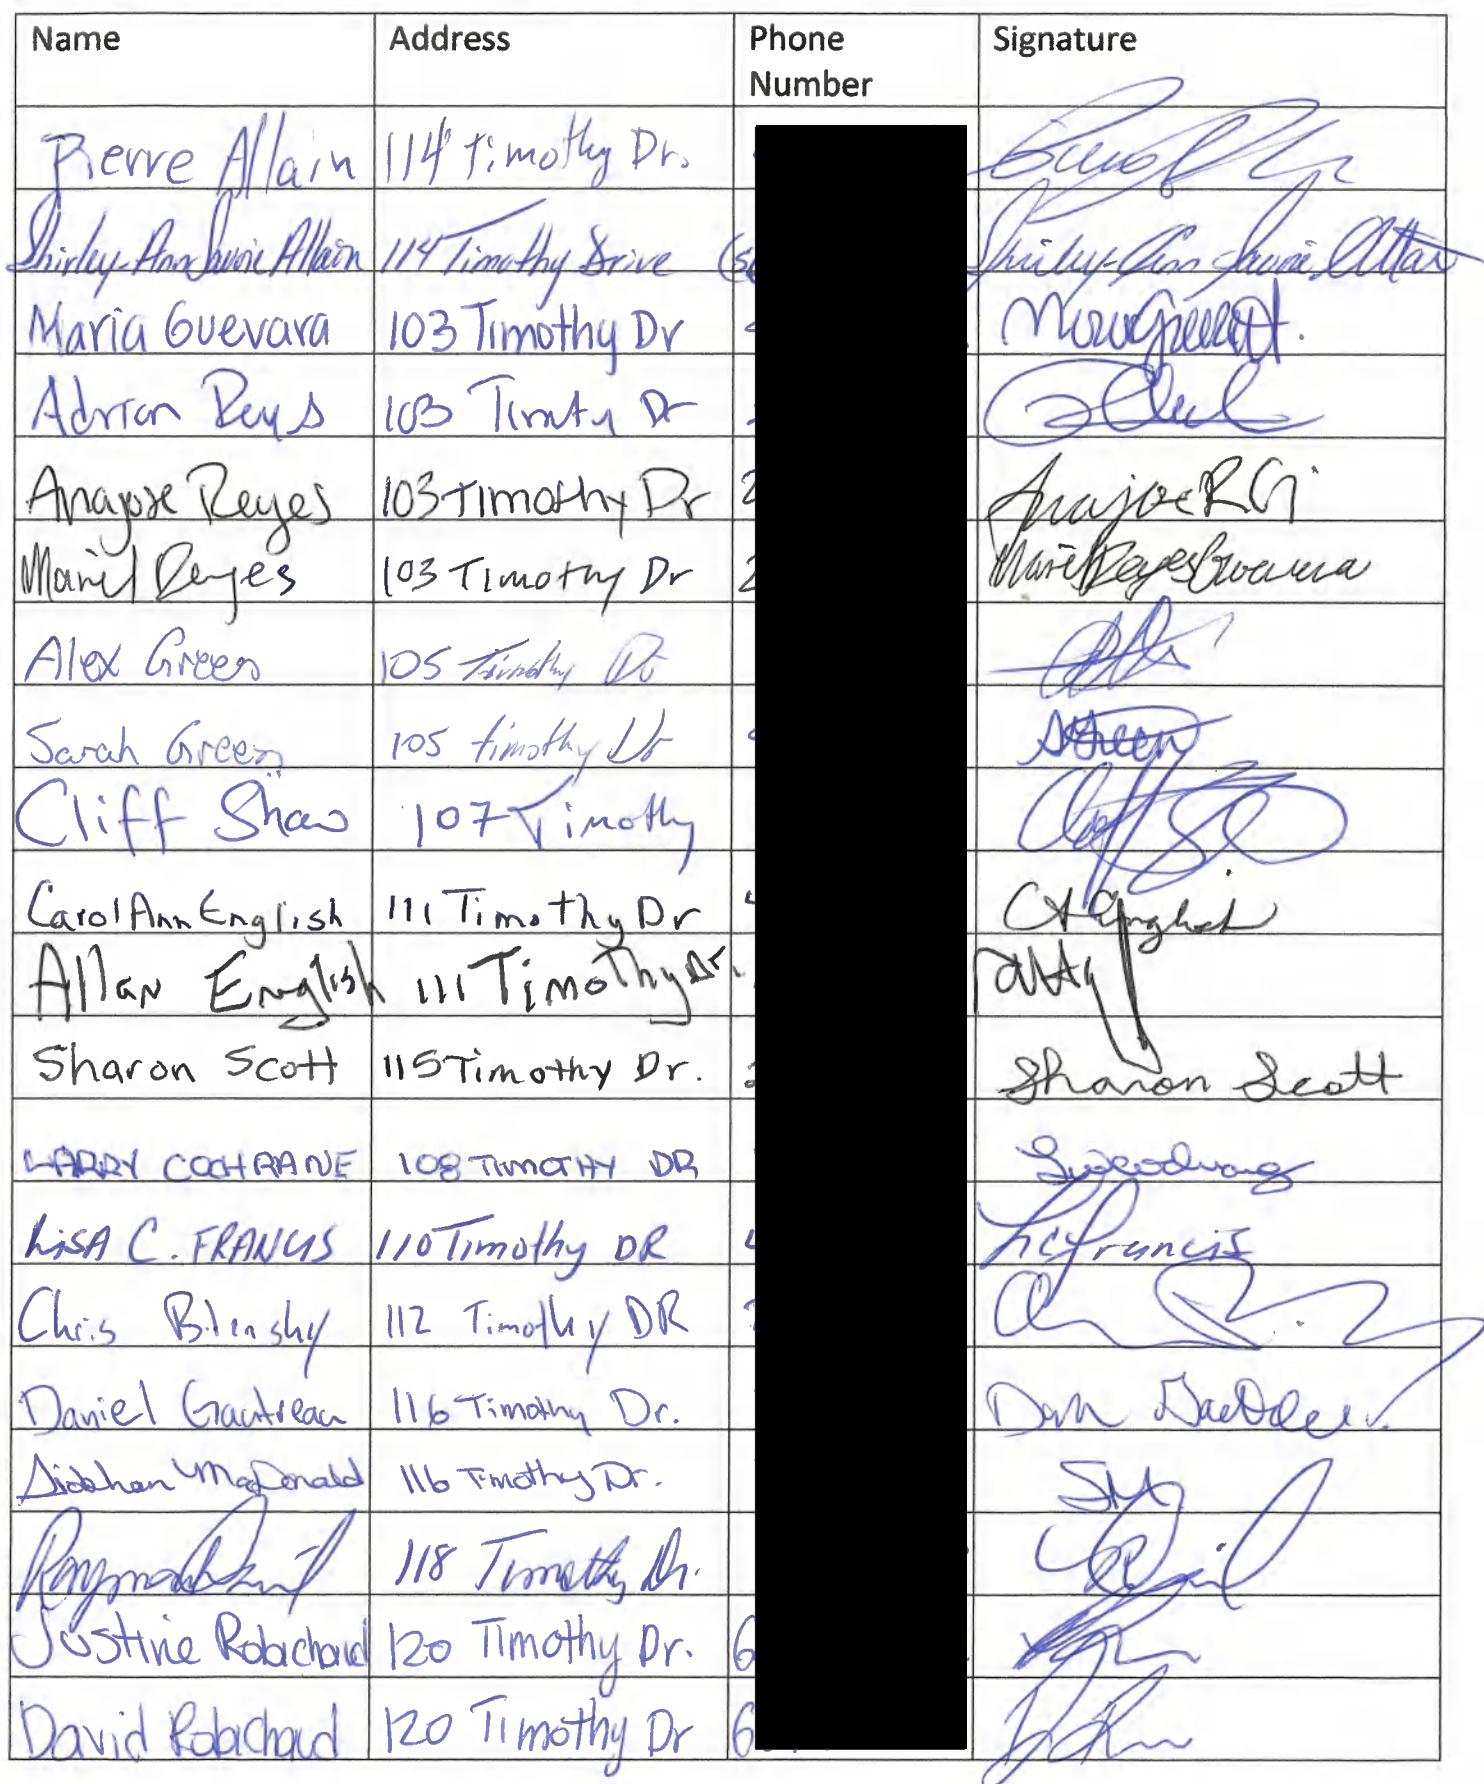 Name Address Phone Number Signature
Pierre Allain 114 Timothy Dr.
Shirley-Ann Savoie Allain 114 Timothy Drive ( Shirley-Ann Savoie Allain
Maria Guevara 103 Timothy Dr
Adrian Reyes 103 Timoty Dr
Anajose Reyes 103 Timothy Dr 2 Anajose R G
Mariel Reyes 103 Timothy Dr 2 Mariel Reyes Guevara
Alex Green 105 Timothy Dr
Sarah Green 105 timothy Dr SGreen
Cliff Shaw 107 Timothy
Carol Ann English 111 Timothy Dr CA English
Allan English 111 Timothy Dr.
Sharon Scott 115 Timothy Dr. Sharon Scott
LARRY COCHRANE 108 TIMOTHY DR
LISA C. FRANCIS 110 Timothy DR LC Francis
Chris 112 Timothy DR
Daniel Gautreau 116 Timothy Dr. Dan
Siobhan MacDonald 116 Timothy Dr. SM
Raymond 118 Timothy Dr.
Justine Robichaud 120 Timothy Dr. 6
David Robichaud 120 Timothy Dr 6